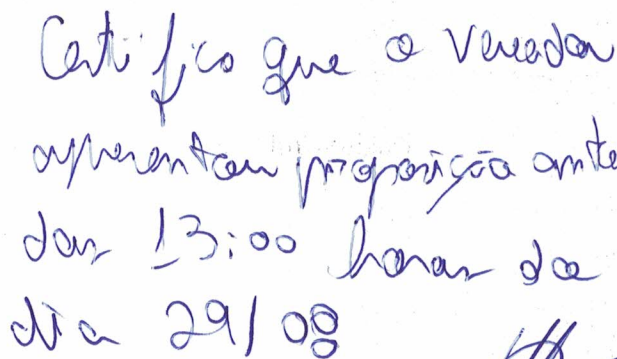 Certifico que o Vereador
apresentou proposição antes
das 13:00 horas do
dia 29/08